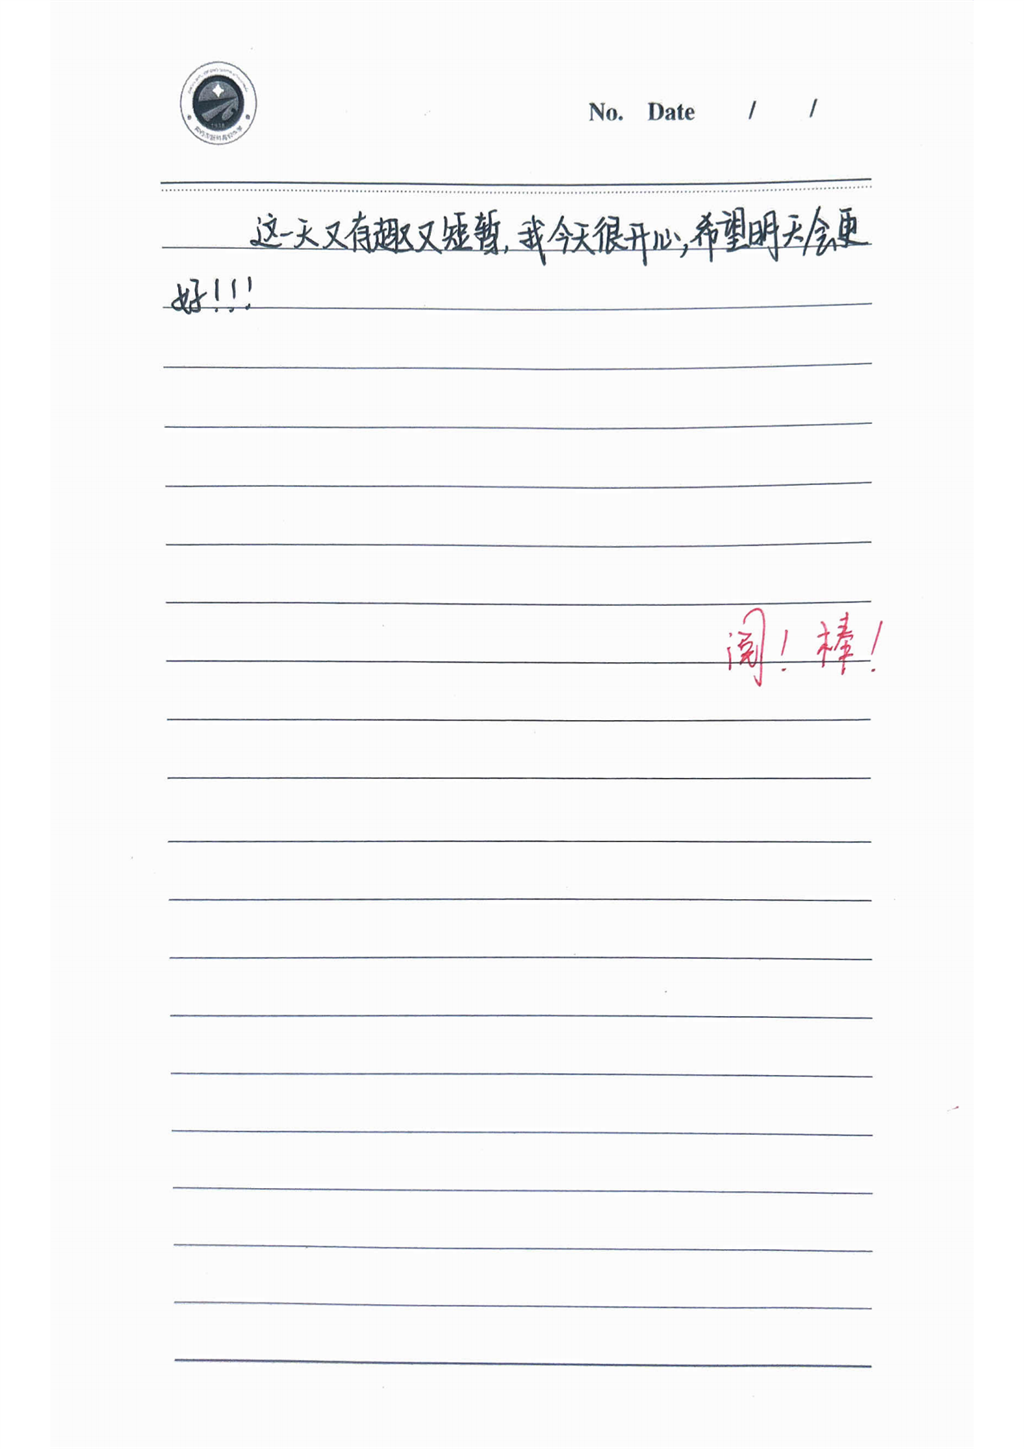 No. Date / /
这一天又有趣又短暂，我今天很开心，希望明天会更
好！！！
阅！棒！